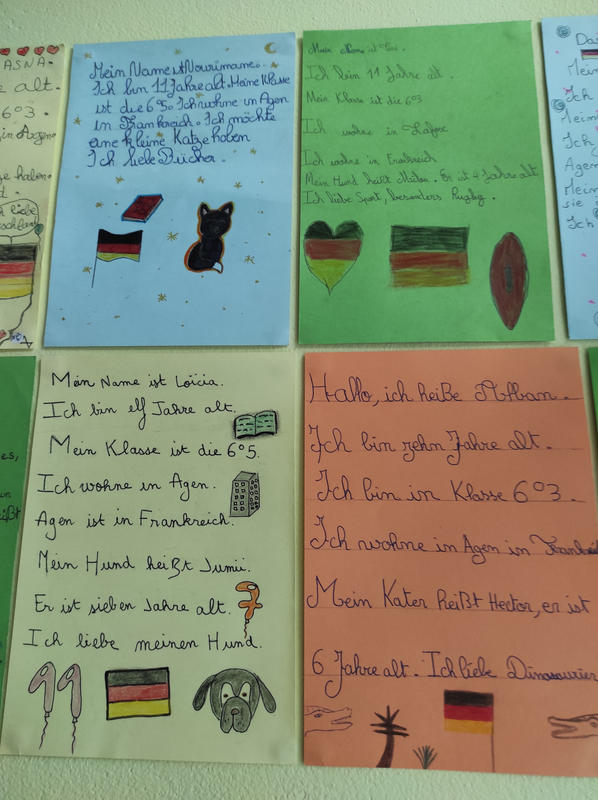 ASNA.
alt.
6°3.
in Agen
haben.
liebe
Mein Name ist Nourimane.
Ich bin 11 Jahre alt. Meine Klasse
ist die 6°5. Ich wohne in Agen
in Frankreich. Ich möchte
eine kleine Katze haben
Ich liebe Bücher.
Mein Name ist
Ich bin 11 Jahre alt.
Mein Klasse ist die 6°3
Ich wohne in Lafox
Ich wohne in Frankreich
Mein Hund heißt . Er ist 4 Jahre alt
Ich liebe Sport, besonders Rugby.
Da
Mein
Ich
Mein
Ich
Agen
Mein
sie
Ich
Mein Name ist Loïcia.
Ich bin elf Jahre alt.
Mein Klasse ist die 6°5.
Ich wohne in Agen.
Agen ist in Frankreich.
Mein Hund heißt Jumii.
Er ist sieben Jahre alt. 7
Ich liebe meinen Hund.
11
Hallo, ich heiße Alban.
Ich bin zehn Jahre alt.
Ich bin in Klasse 6°3.
Ich wohne in Agen in
Mein Kater heißt Hector, er ist
6 Jahre alt. Ich liebe Dinosaurier